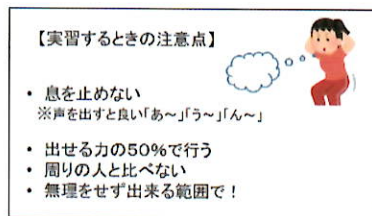 【実習するときの注意点】
・ 息を止めない
※声を出すと良い「あ～」「う～」「ん～」
・ 出せる力の50%で行う
・ 周りの人と比べない
・ 無理をせず出来る範囲で！